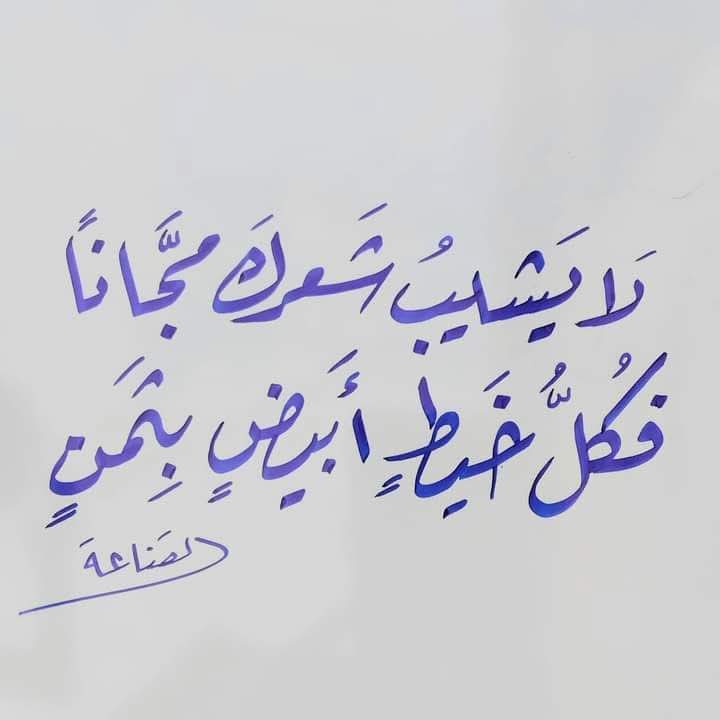 لَا يَشيبُ شَعركَ مجَّاناً
فكُلُّ خَيطٍ أبيضٍ بِثمَنٍ